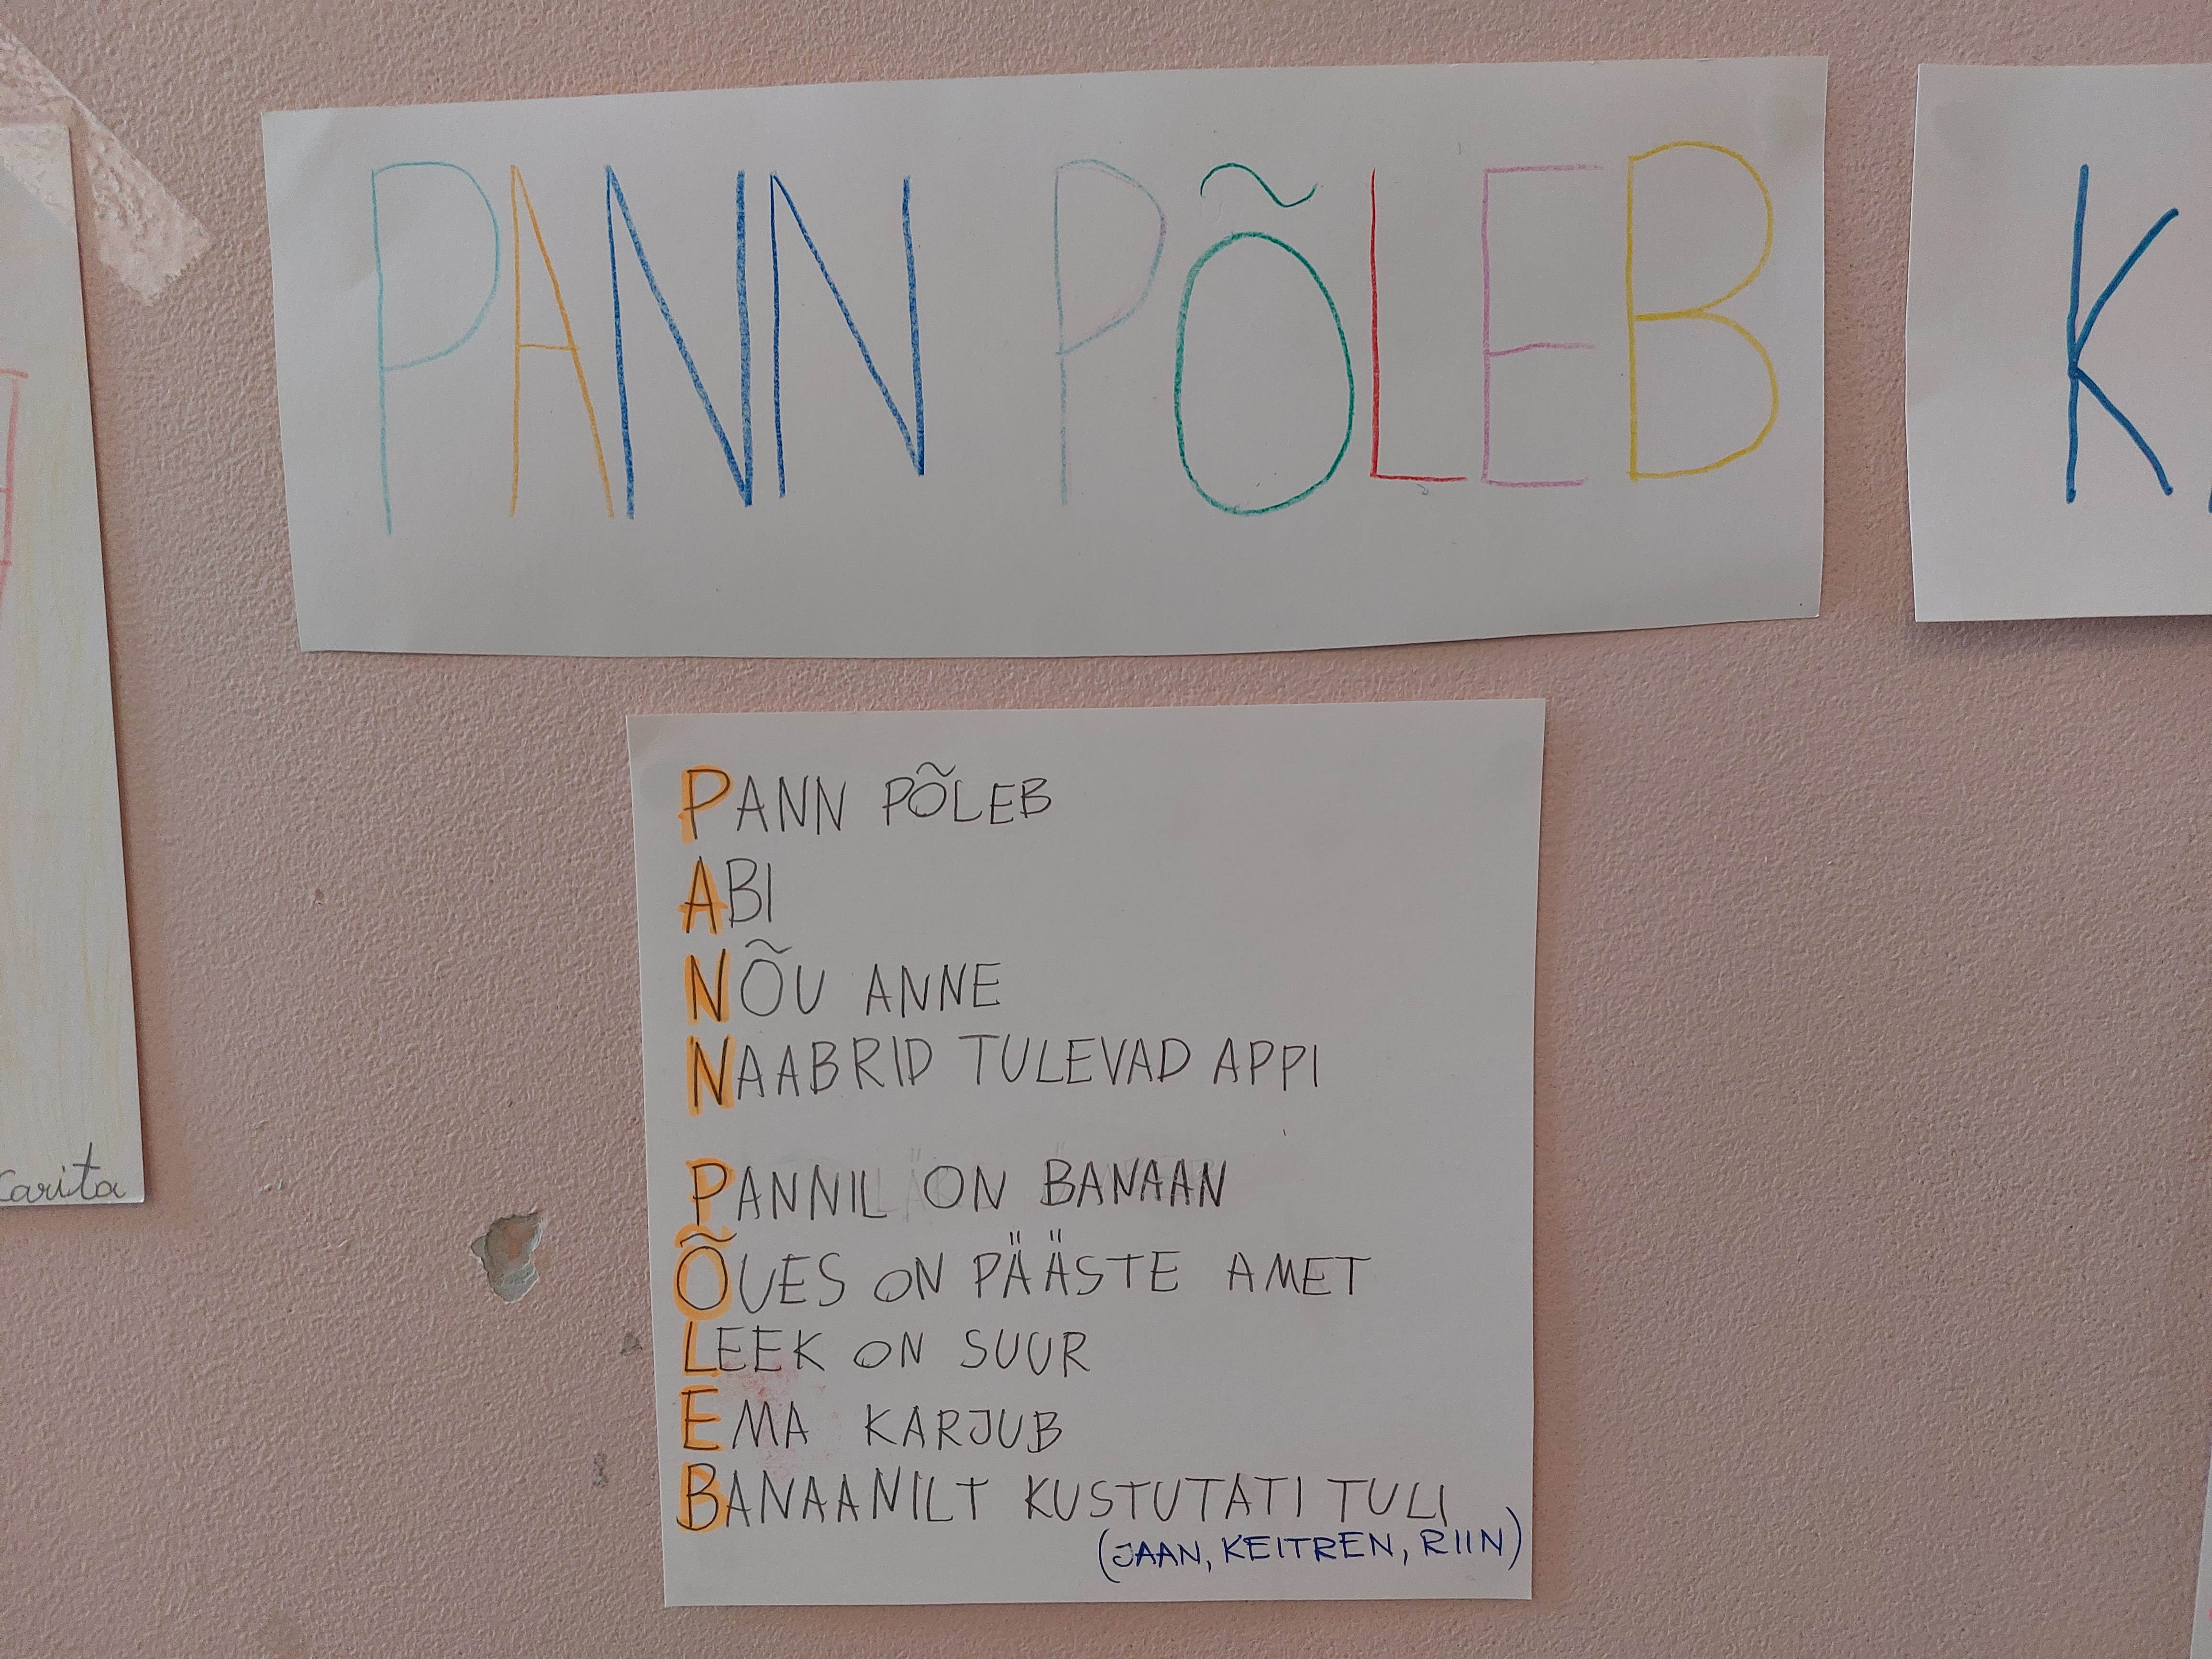 PANN PÕLEB
K
PANN PÕLEB
ABI
NÕU ANNE
NAABRID TULEVAD APPI
PANNIL ON BANAAN
ÕUES ON PÄÄSTE AMET
LEEK ON SUUR
EMA KARJUB
BANAANILT KUSTUTATI TULI
(JAAN, KEITREN, RIIN)
Carita